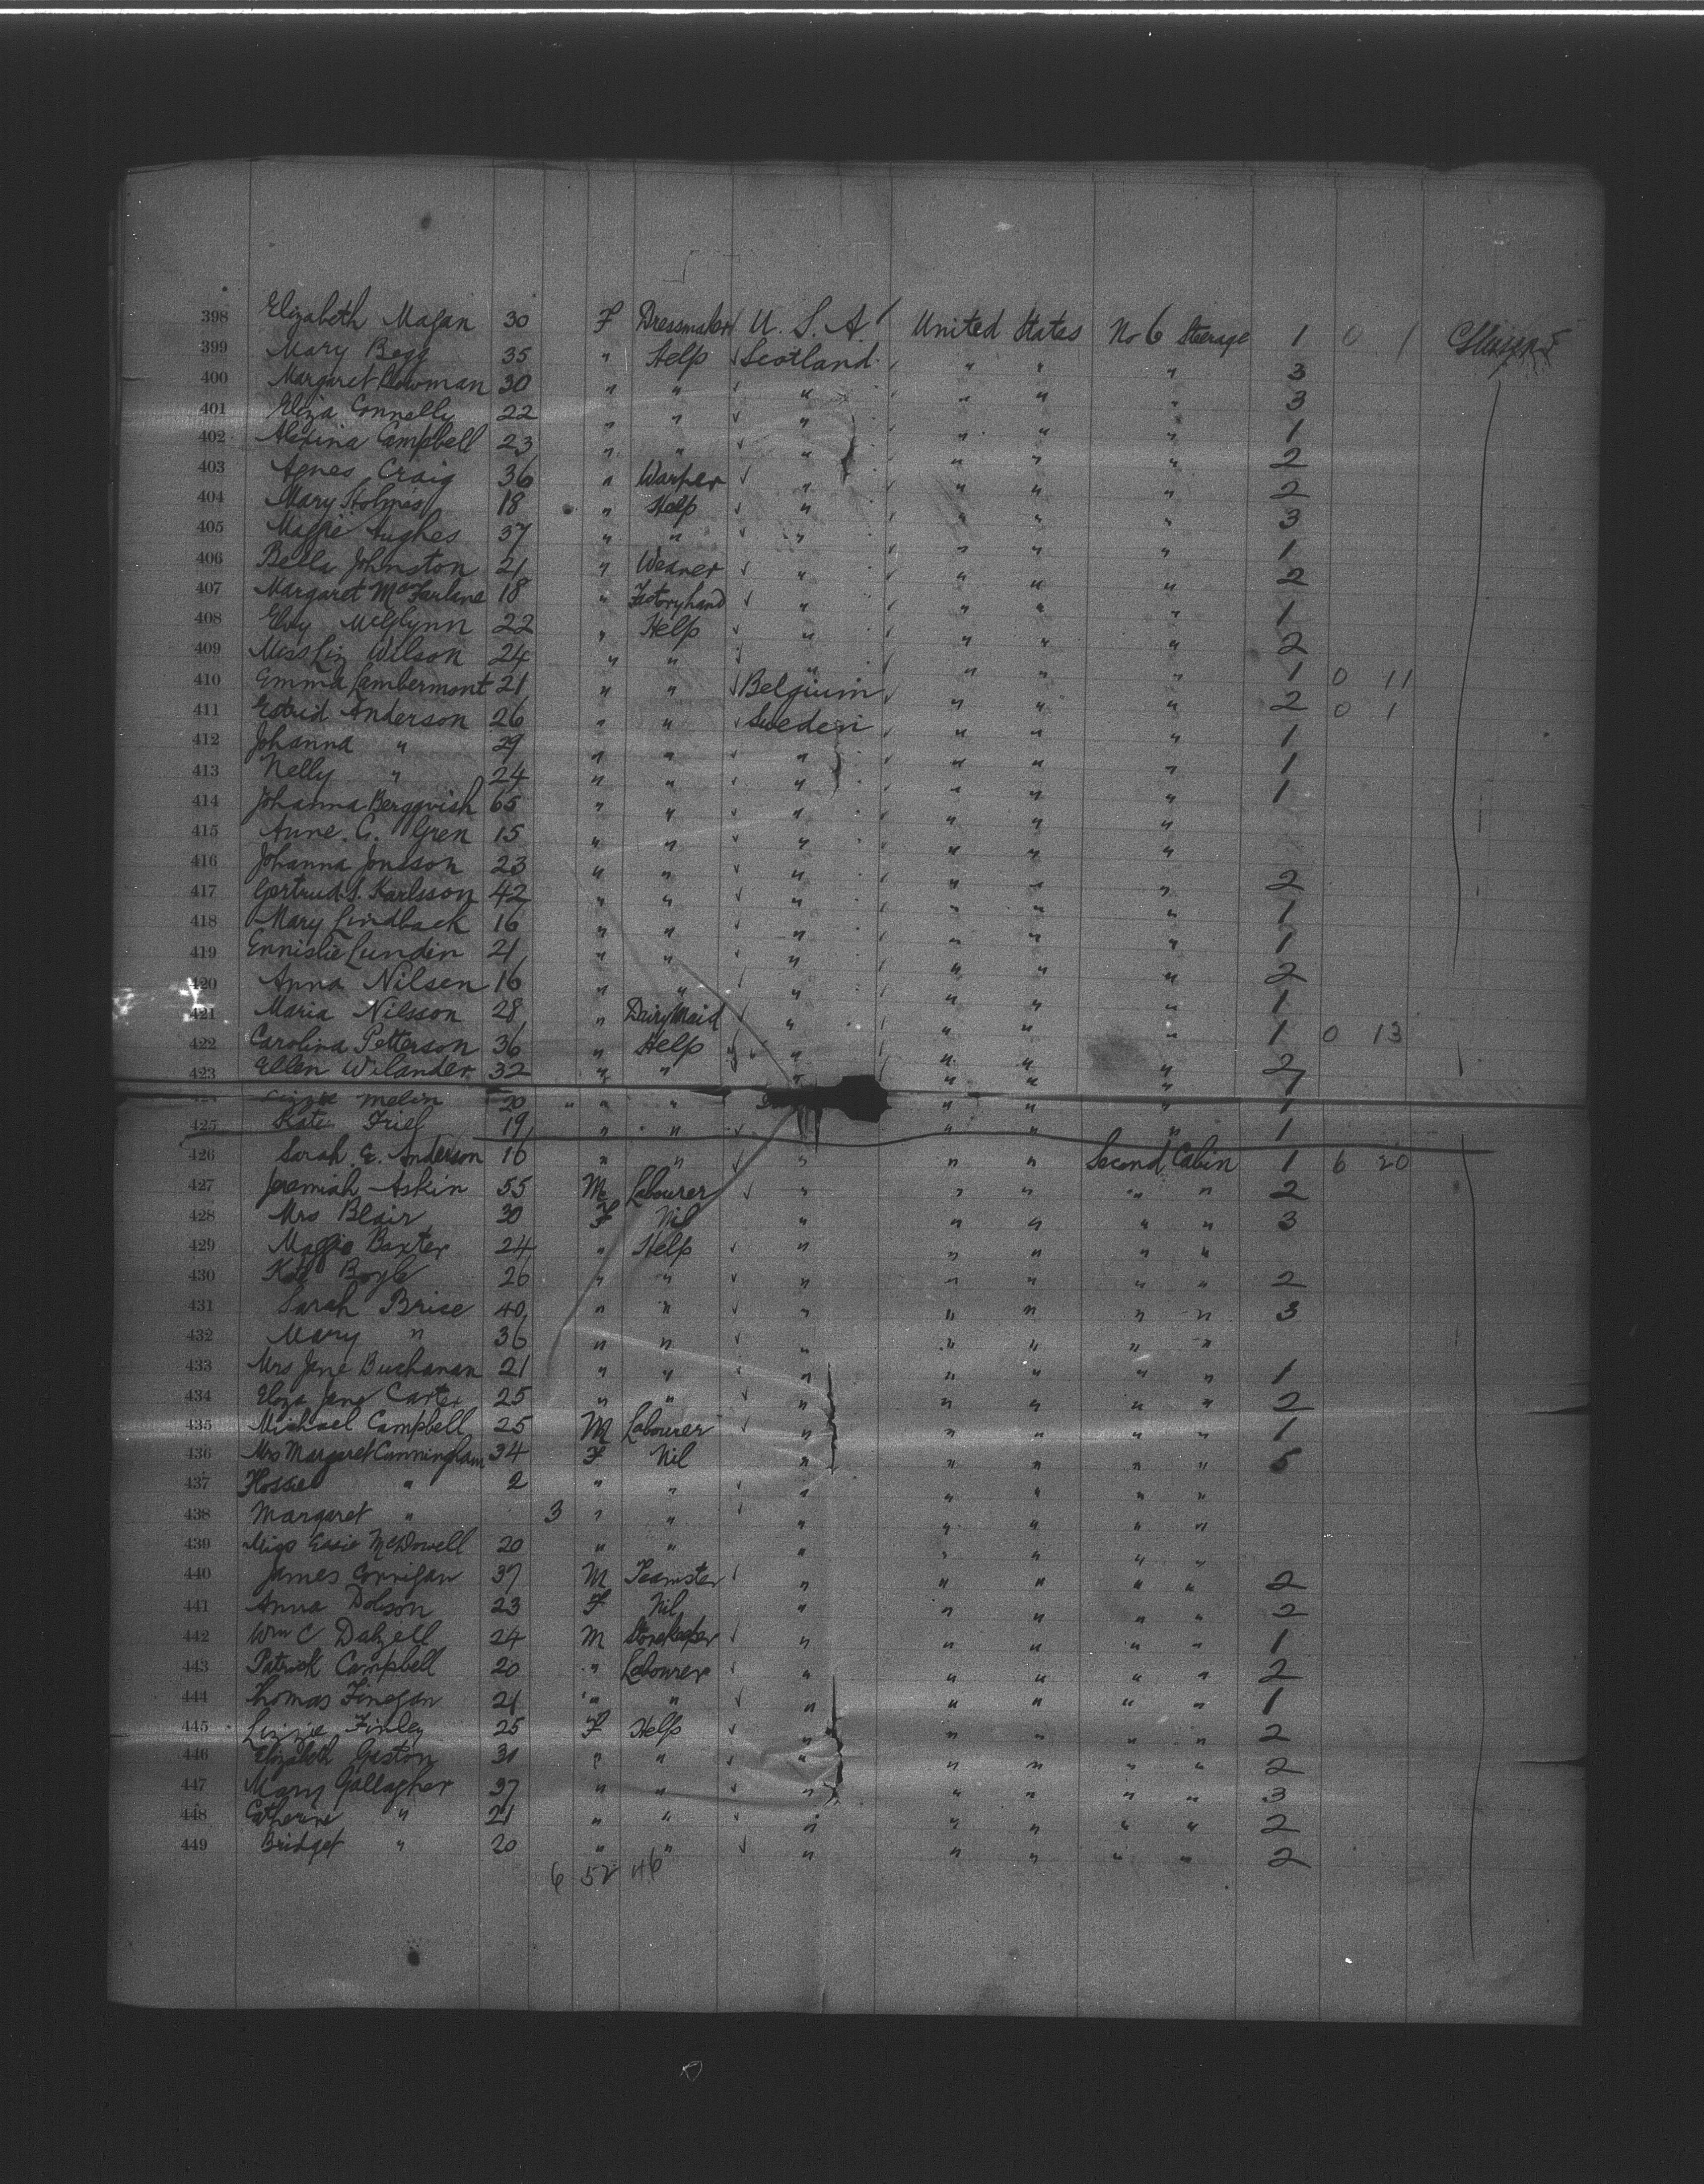 398 Elizabeth Magan 30 F Dressmaker U. S. A United States No 6 Steerage 1 0 1
399 Mary Begg 35 " Help Scotland " " " 3
400 Margaret Bowman 30 " " " " " " 3
401 Eliza Connelly 22 " " " " " " 1
402 Alexina Campbell 23 " " " " " " 2
403 Agnes Craig 36 " Warper " " " " 2
404 Mary Holmes 18 " Help " " " " 3
405 Maggie Hughes 37 " " " " " " 1
406 Bella Johnston 21 " Weaver " " " " 2
407 Margaret McFarlane 18 " Factory hand " " " " 1
408 McGlynn 22 " Help " " " " 2
409 Miss Liz Wilson 24 " " " " " " 1 0 11
410 Emma Lambermont 21 " " Belgium " " " 2 0 1
411 Estrid Anderson 26 " " Sweden " " " 1
412 Johanna " 29 " " " " " " 1
413 Nelly " 24 " " " " " " 1
414 Johanna Bergqvish 65 " " " " " "
415 Anne. C. Gren 15 " " " " " "
416 Johanna Jonsson 23 " " " " " " 2
417 Gertrud S. Karlsson 42 " " " " " " 1
418 Mary Lindback 16 " " " " " " 1
419 Lundin 21 " " " " " " 2
420 Anna Nilsen 16 " " " " " " 1
421 Maria Nilsson 28 " Dairy Maid " " " " 1 0 13
422 Carolina Petterson 36 " Help " " " " 2
423 Ellen Wilander 32 " " " " " " 1
424 Lizzie Melin 20 " " " " " 1
425 Kate Friel 19 " " " " " 1
426 Sarah. E. Anderson 16 " " " " " Second Cabin 1 6 20
427 Jeremiah Askin 55 M Labourer " " " " " 2
428 Mrs Blair 30 F Nil " " " " " 3
429 Maggie Baxter 24 " Help " " " " "
430 Kate Boyle 26 " " " " " " " 2
431 Sarah Brice 40 " " " " " " " 3
432 Mary " 36 " " " " " " "
433 Mrs Jane Buchanan 21 " " " " " " " 1
434 Eliza Jane Carter 25 " " " " " " " 2
435 Michael Campbell 25 M Labourer " " " " " 1
436 Mrs Margaret Cunningham 34 F Nil " " " " " 5
437 Flossie " 2 " " " " " " "
438 Margaret " 3 " " " " " " "
439 Miss Easie McDowell 20 " " " " " " "
440 James Corrigan 37 M Teamster " " " " " 2
441 Anna Dobson 23 F Nil " " " " " 2
442 Wm C Dalzell 24 M Storekeeper " " " " " 1
443 Patrick Campbell 20 " Labourer " " " " " 2
444 Thomas Finegan 21 " " " " " " " 1
445 Lizzie Finley 25 F Help " " " " " 2
446 Elizabeth Gaston 31 " " " " " " " 2
447 Mary Gallagher 37 " " " " " " " 3
448 Catherine " 21 " " " " " " " 2
449 Bridget " 20 " " " " " " " 2
6 52 46